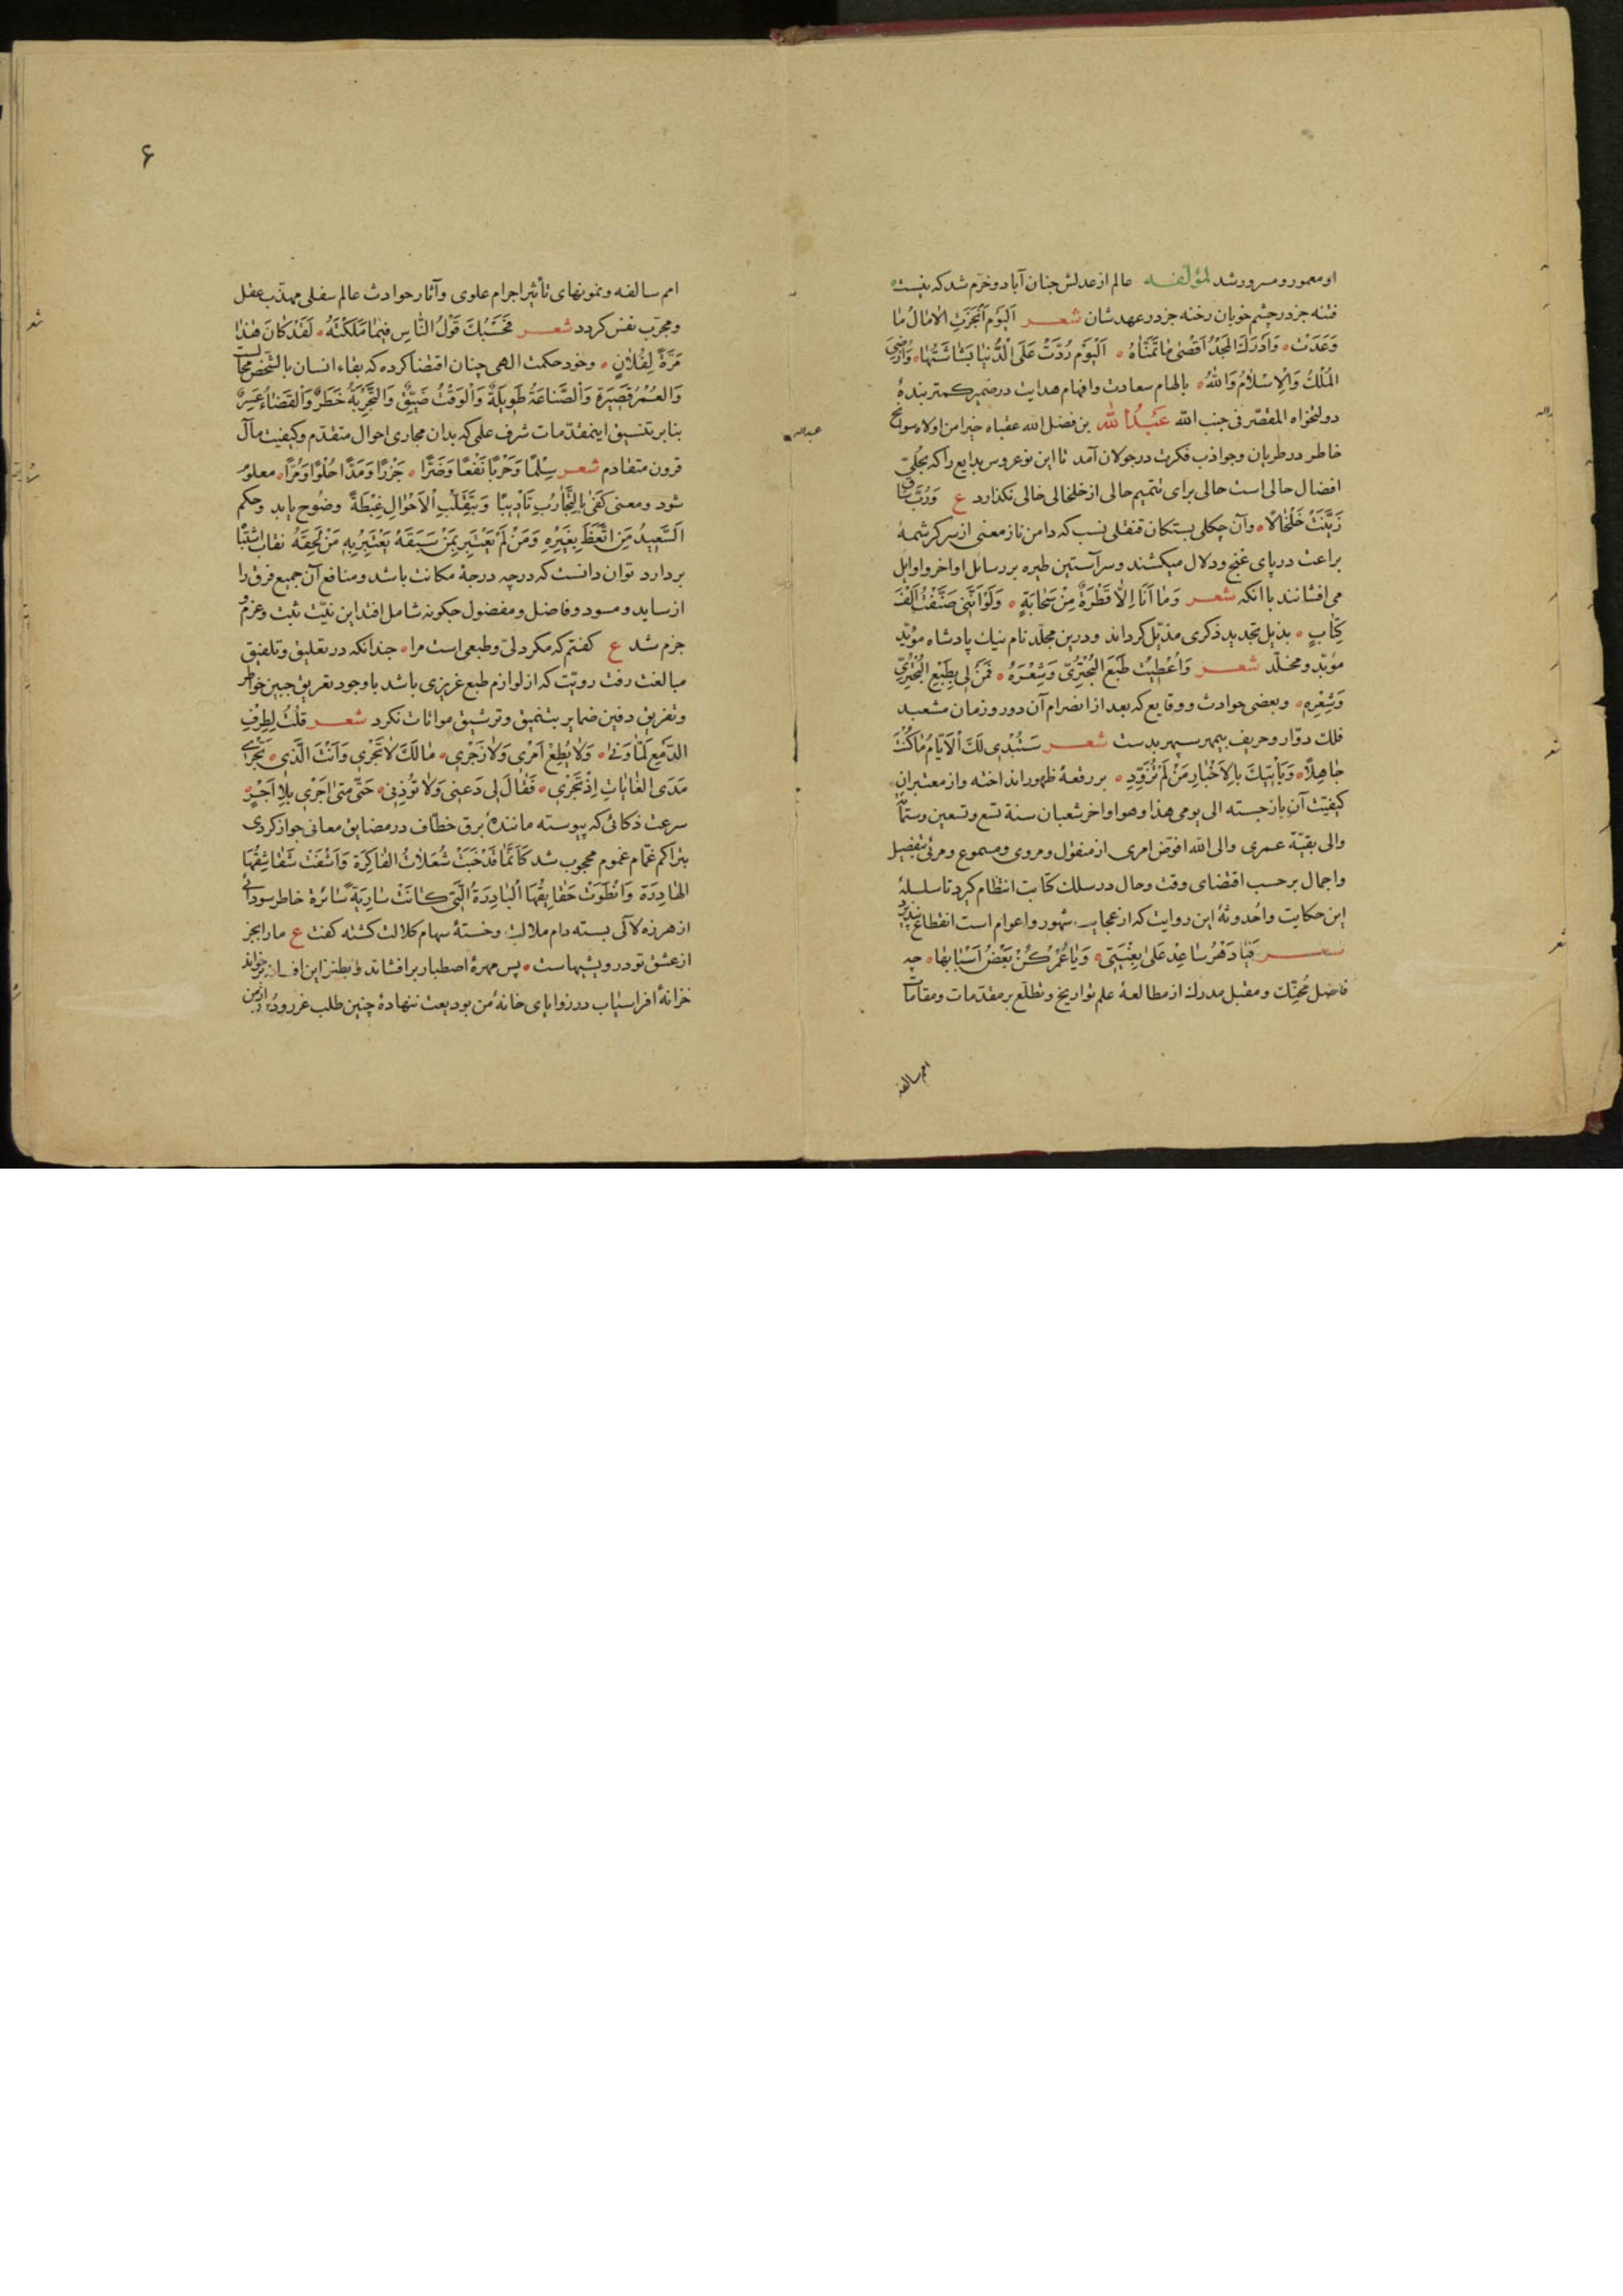 او معمور و مسرور شد لمؤلّفه عالم از عدلش جنان آباد و خرّم شد که نیست
فتنه جز در چشم خوبان رخنه جز در عهدشان شعر اَلیَوم اَنجَزَتِ الامالُ مٰا
وَعَدَتْ وَاَدرَكَ المَجدُ اَقصٰی مٰا تَمَنّٰاهُ اَلیَوم رُدَّتْ عَلَی الدُّنیٰا بَشٰاشَتُهٰا وَاُرضِیَ
المُلْكُ وَالاِسْلامُ وَاللهُ بالهام سعادت و افهام هدایت در ضمیر کمتر بندهٔ
دولتخواه المقصّر فی جنب الله عَبدُالله بن فضل الله عقباه خیرا من اولاه سوانح
خاطر در طریان و جواذب فکرت در جولان آمد تا این نوعروس بدایع را که بحُلیّ
افضال حالی است حالی برای تتمیم حالی از خلخالی خالی نگذارد ع وَرُبَّ سٰاق
زَیَّنَتْ خَلْخٰالاً وآن چکلی بستکان قنقلی نسب که دامن ناز معنی از سر کرشمهٔ
براعت در پای غنج و دلال میکشند و سر آستین طیره بر رسائل اواخر و اوایل
می افشانند با انکه شعر وَمٰا اَنَا اِلّا قَطْرَةٌ مِنْ سَحٰابَةٍ وَلَوْ اَنَّنی صَنَّفْتُ اَلْفَ
کِتٰابٍ بذیل تجدید ذکری مذیّل کرداند و درین مجلّد نام نیك پادشاه مؤیّد
مؤبّد و مخلّد شعر وَاُعْطِیْتُ طَبْعَ البُحْتُرِیّ وَشِعْرَهُ فَمَنْ لی بِطَبْعِ البُحْتُرِیّ
وَشِعْرِهِ وبعضی حوادث و وقایع که بعد از انصرام آن دور و زمان مشعبد
فلك دوّار و حریف بیمهر سپهر بدست شعر سَتُبْدی لَكَ الاَیّٰامُ مٰا كُنْتَ
جٰاهِلاً وَیَأتیكَ بِالاَخْبٰارِ مَنْ لَمْ تُزَوِّدِ بر رقعهٔ ظهور انداخته و از معتبران
کیفیّت آن بازجسته الی یومی هذا و هو اواخر شعبان سنة تسع و تسعین و ستمائه
والی بقیّة عمری والی الله افوّض امری از منقول و مروی و مسموع و مرئی بتفصیل
و اجمال بر حسب اقتضای وقت و حال در سلك کتابت انتظام کیرد تا سلسلهٔ
این حکایت و اُحدوثهٔ این روایت که از عجایب شهور و اعوام است انقطاع نپذیرد
شعر فَیٰا دَهْرُ سٰاعِدْ عَلیٰ بِغْیَتی وَیٰا عُمْرُ كُنْ بَعْضَ اَسْبٰابِهٰا چه
فاضل مُحنّك و مقبل مدرك از مطالعهٔ علم تواریخ و تطلّع بر مقدّمات و مقامات
امم سالفه
۶
امم سالفه و نمونهای تأثیر اجرام علوی و آثار حوادث عالم سفلی مهذّب عقل
و مجرّب نفس کردد شعر فَحَسْبُكَ قَوْلُ النّٰاسِ فیمٰا مَلَكْتَهُ لَقَدْ كٰانَ هٰذٰا
مَرَّةً لِفُلٰانٍ وخود حکمت الهی چنان اقتضا کرده که بقاء انسان بالشّخص محالست
وَالعُمْرُ قَصیرَة وَالصَّنٰاعَةُ طَویلَةٌ وَالْوَقْتُ ضَیِّقٌ وَالتَّجْرِبَةُ خَطَرٌ وَالقَضٰاءُ عَسِرٌ
بنابر تنسیق اینمقدّمات شرف علمی که بدان مجاری احوال متقدّم و کیفیت مآل
قرون متقادم شعر سِلْمًا وَحَرْبًا نَفْعًا وَضَرًّا جَزْرًا وَمَدًّا حُلْوًا وَمُرًّا معلوم
شود و معنی كَفیٰ بِالتَّجٰارُبِ تَأدیبًا وَبِتَقَلُّبِ الاَحْوٰالِ غِبْطَةً وضوح یابد و حکم
اَلسَّعیدُ مَنِ اتَّعَظَ بِغَیْرِهِ وَمَنْ لَمْ یَعْتَبِرْ بِمَنْ سَبَقَهُ یَعْتَبِرُ بِهِ مَنْ لَحِقَهُ نقاب اشتباه
بردارد توان دانست که در چه درجهٔ مکانت باشد و منافع آن جمیع فرق را
از ساید و مسود و فاضل و مفضول چکونه شامل افتد این نیّت ثبت و عزم
جزم شد ع کفتم که مکر دلی و طبعی است مرا چندانکه در تعلیق و تلفیق
مبالغت رفت رویّت که از لوازم طبع غریزی باشد با وجود تعریق جبین خواطر
و تفریق دفین ضمایر بتنمیق و ترشیق مواتات نکرد شعر قلْتُ لِطِرْفِ
الدَّمْعِ لَمّٰا وَنیٰ وَلٰا یُطِعْ اَمْری وَلٰا زَجْری مٰا لَكَ لٰا تَجْری وَاَنْتَ الَّذی تَجْری
مَدَی الغٰایٰاتِ اِذْ تَجْری فَقٰالَ لی دَعْنی وَلٰا تُؤْذِنی حَتّیٰ مَتیٰ اَجْری بِلٰا اَجْرٍ
سرعت ذکائی که پیوسته مانندهٔ برق خطّاف در مضایق معانی جواز کردی
بتراکم غمام غموم محجوب شد كَاَنَّمٰا قَدْ خَبَتْ شُعَلٰاتُ الفٰاكِرَة وَاَشْفَتْ شَقٰاشِقُهَا
الهٰادِرَة وَانْطَوَتْ حَقٰایِقُهَا الْبٰادِرَةُ الَّتی كٰانَتْ سٰارِیَةً سٰائِرَة خاطر سودائی
از هرزه لاآلی بسته دام ملالت و خستهٔ سهام کلالت کشته کفت ع ما را بجز
از عشق تو درویشیهاست پس مهرهٔ اصطبار برافشاند و بطنز این افسانه برخواند
خزانهٔ افراسیاب در زوایای خانهٔ من بودیعت ننهادهٔ چنین طلب غرر و دُرَر از من
عبدالله
شعر
شعر
شعر